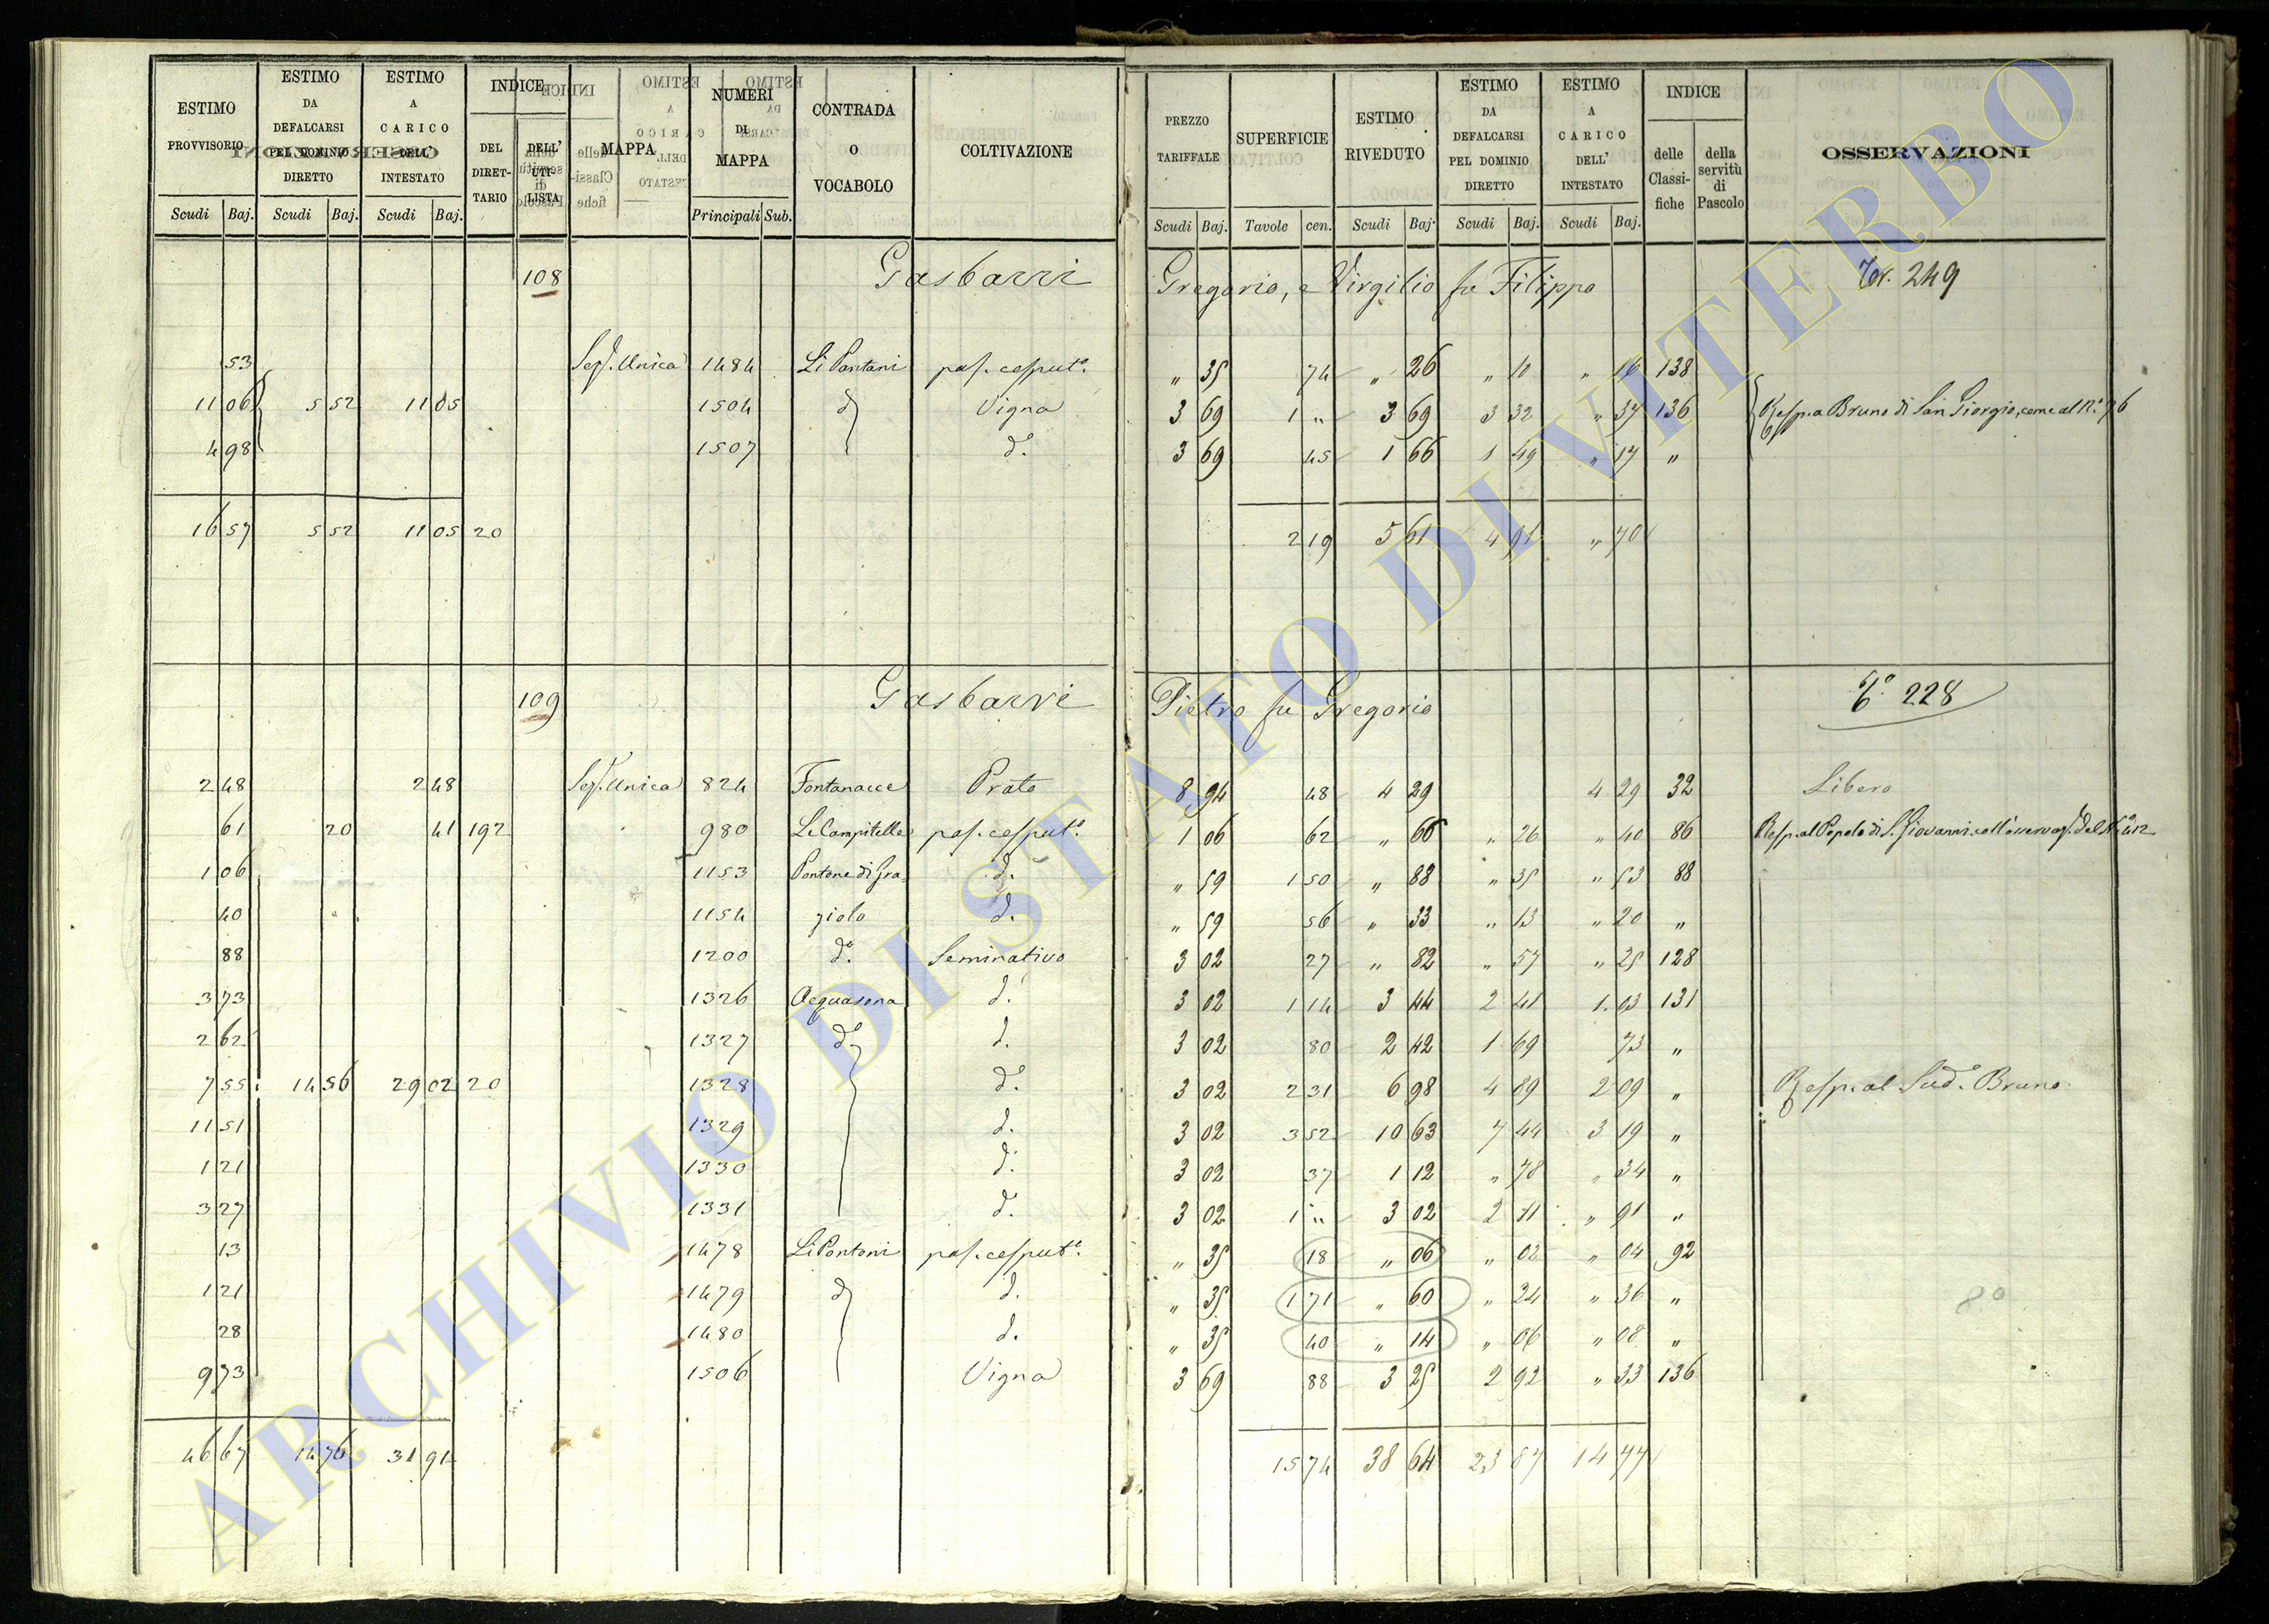 ESTIMO PROVVISORIO | ESTIMO DA DEFALCARSI PEL DOMINIO DIRETTO | ESTIMO A CARICO DELL' INTESTATO | INDICE DEL DIRETTARIO | DELL' UTILISTA | MAPPA | NUMERI DI MAPPA | CONTRADA O VOCABOLO | COLTIVAZIONE | PREZZO TARIFFALE | SUPERFICIE | ESTIMO RIVEDUTO | ESTIMO DA DEFALCARSI PEL DOMINIO DIRETTO | ESTIMO A CARICO DELL' INTESTATO | INDICE delle Classifiche | della servitù di Pascolo | OSSERVAZIONI
Scudi Baj. | Scudi Baj. | Scudi Baj. | Principali Sub. | Scudi Baj. | Tavole cen. | Scudi Baj. | Scudi Baj. | Scudi Baj.
108 Gasbarri Gregorio, e Virgilio fu Filippo 249
53 Sez. Unica 1484 Li Pantani pas. cesput.o " 35 74 " 26 " 10 " 16 138
11 06 5 52 11 05 1504 d.o Vigna 3 69 1 " 3 69 3 32 " 37 136 Resp. a Bruno di San Giorgio, come al N.o 76
4 98 1507 d.o 3 69 45 1 66 1 49 " 17 "
16 57 5 52 11 05 20 2 19 5 61 4 91 " 70
109 Gasbarri Pietro fu Gregorio 228
2 48 2 48 Sez. Unica 824 Fontanacce Prato 8 94 48 4 29 4 29 32 Libero
61 20 41 192 980 Le Campitelle pas. cesput.o 1 06 62 " 66 " 26 " 40 86 Resp. al Popolo di S. Giovanni, coll'osservaz. del N.o 412
1 06 1153 Pantane di Gra- d.o " 59 1 50 " 88 " 35 " 53 88
40 1154 ziolo d.o " 59 56 " 33 " 13 " 20 "
88 1200 d.o Seminativo 3 02 27 " 82 " 57 " 25 128
3 73 1326 Acquasona d.o 3 02 1 14 3 44 2 41 1 03 131
2 62 1327 d.o d.o 3 02 80 2 42 1 69 73 "
7 55 14 56 29 02 20 1328 d.o 3 02 2 31 6 98 4 89 2 09 " Resp. al Sud.o Bruno
11 51 1329 d.o 3 02 3 52 10 63 7 44 3 19 "
1 21 1330 d.o 3 02 37 1 12 " 78 " 34 "
3 27 1331 d.o 3 02 1 " 3 02 2 11 " 91 "
13 1478 Li Pantani pas. cesput.o " 35 18 " 06 " 02 " 04 92
1 21 1479 d.o d.o " 35 1 71 " 60 " 24 " 36 "
28 1480 d.o " 35 40 " 14 " 06 " 08 "
9 73 1506 Vigna 3 69 88 3 25 2 92 " 33 136
46 67 14 76 31 91 15 74 38 64 23 87 14 77
ARCHIVIO DI STATO DI VITERBO